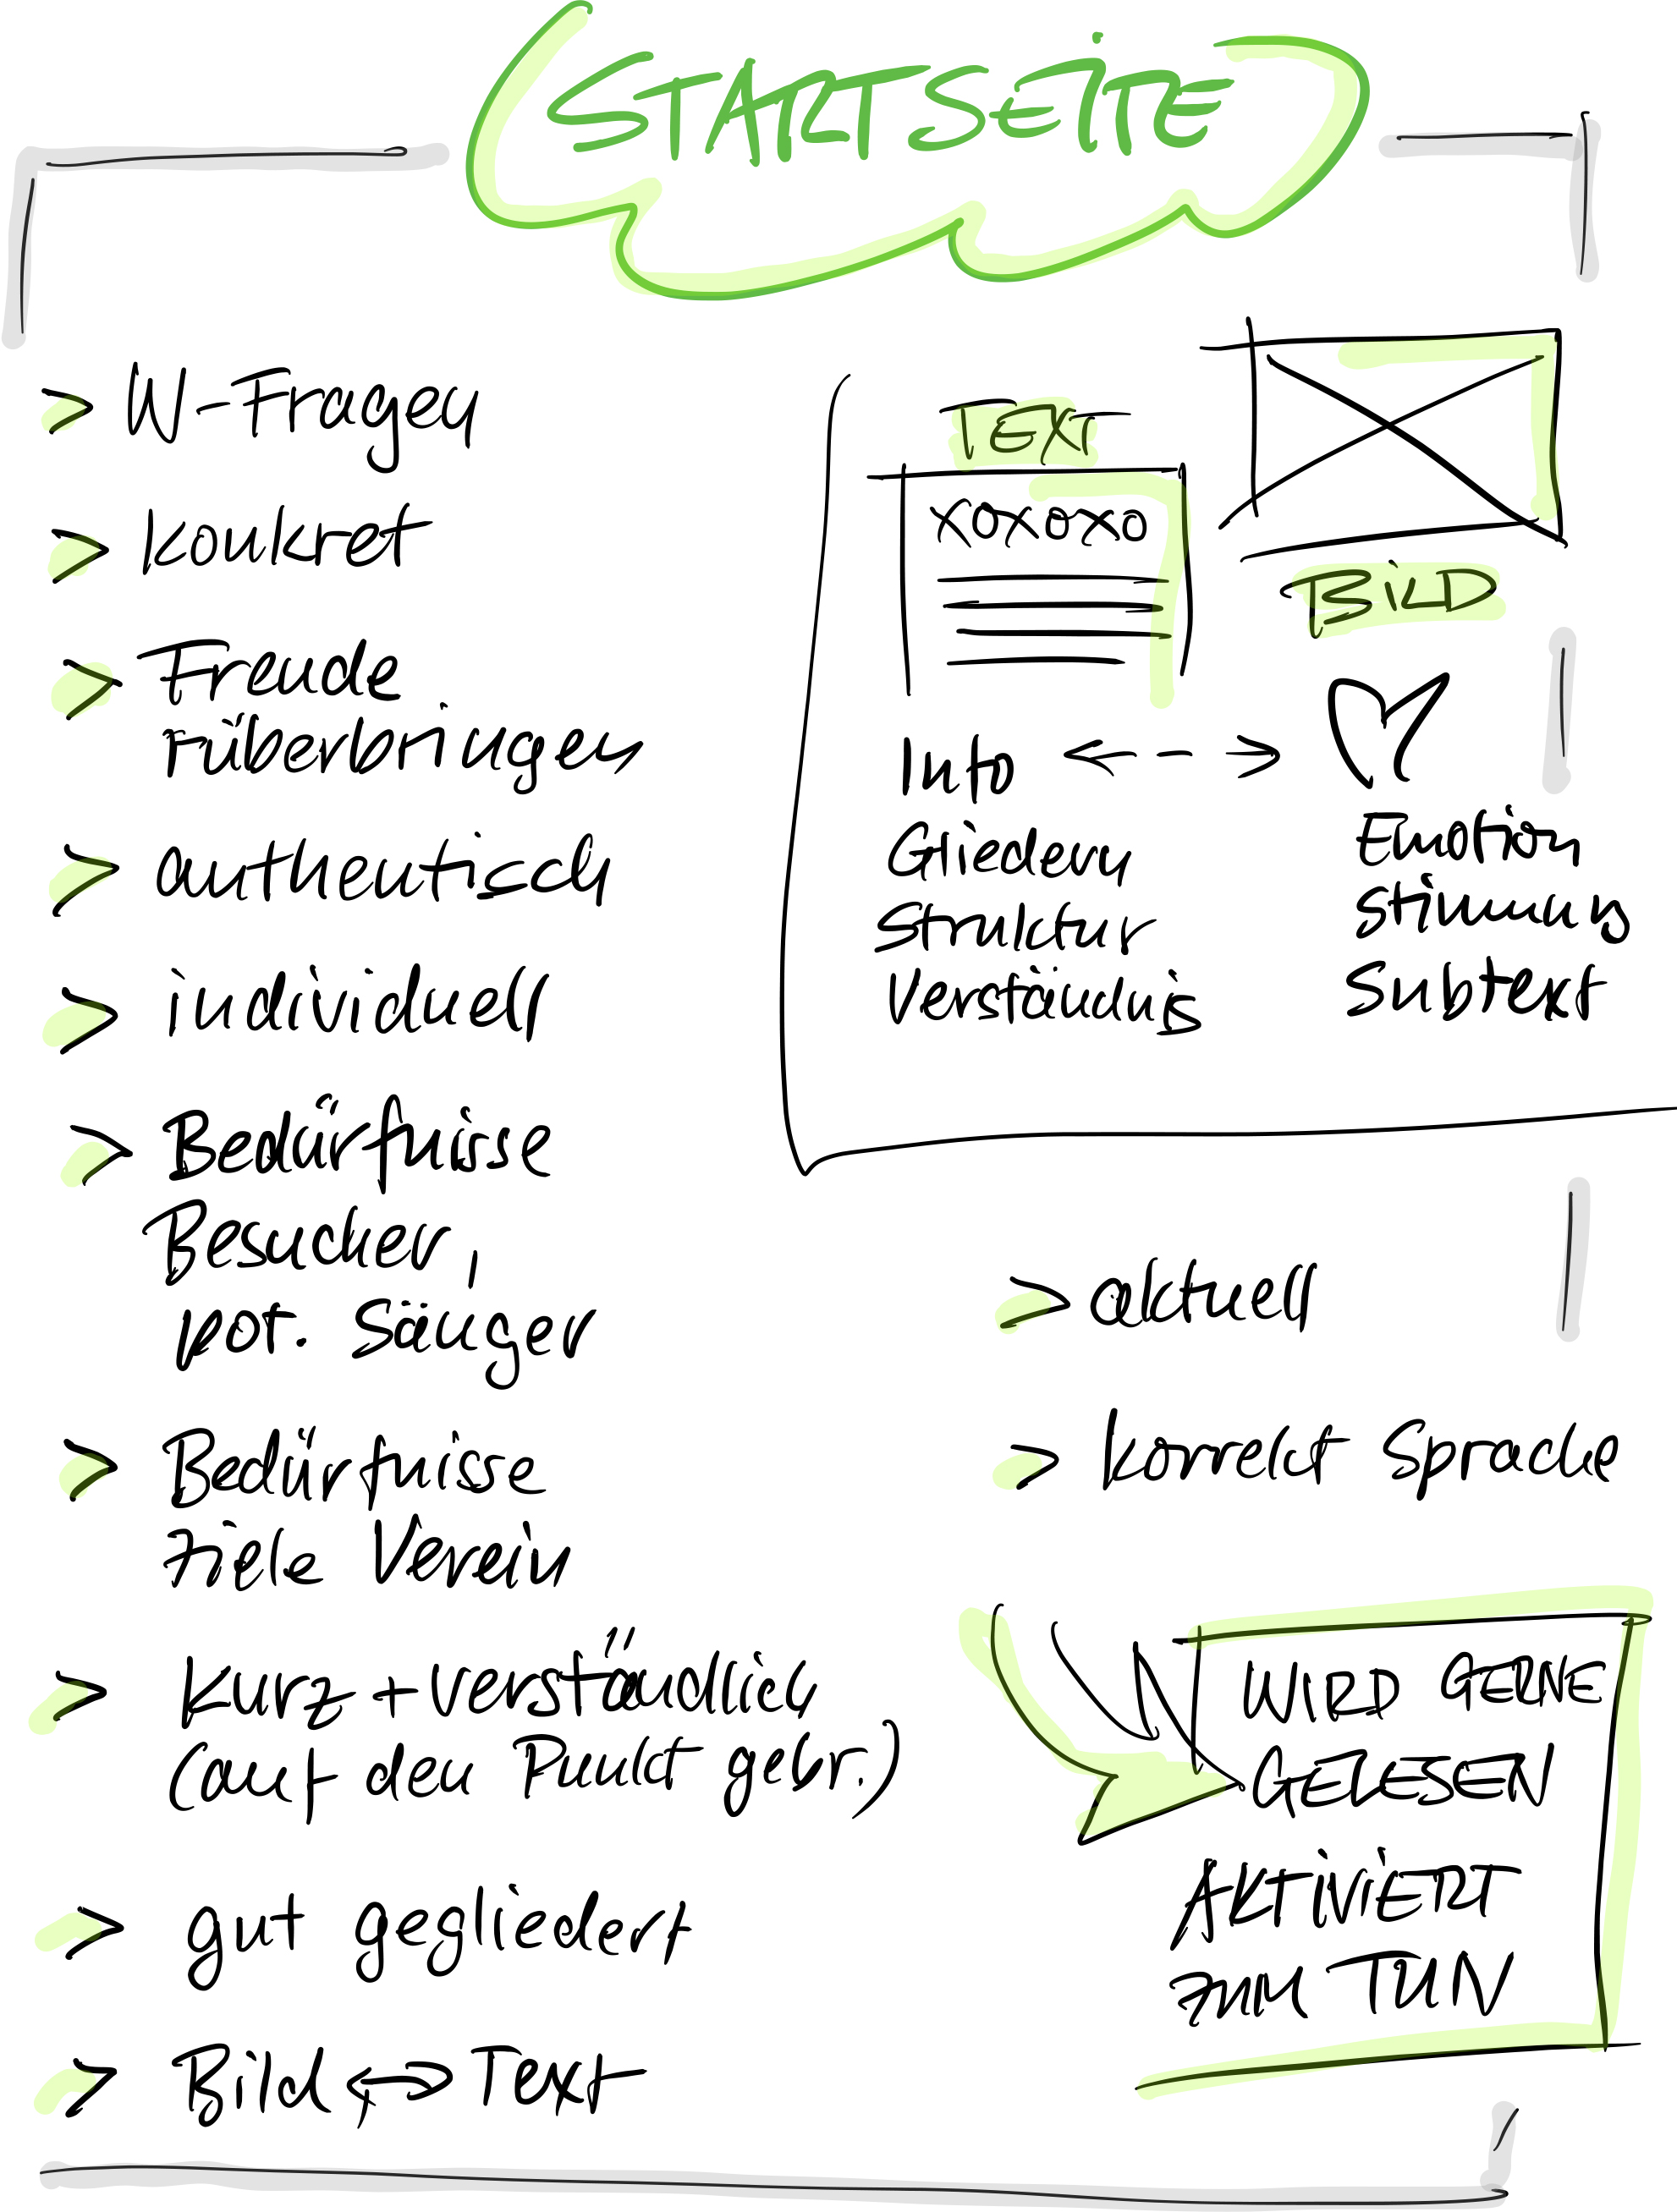 STARTSEITE
> W-Fragen
> konkret
> Freude
rüberbringen
> authentisch
> individuell
> Bedürfnisse
Besucher,
pot. Sänger
> Bedürfnisse
Ziele Verein
> kurz + verständlich
(auf den Punkt gebr.)
> gut gegliedert
> Bild <-> Text
TEXT
XOXOXO
BILD
Info <- - ->
Gliedern
Struktur
Verständnis
Emotion
Stimmung
Subtext
> aktuell
> korrekt Sprache
WIRD GERNE
GELESEN
AKTIVIERT
ZUM TUN